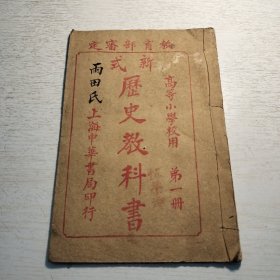 教育部審定
新式
高等小學校用
第一冊
歷史教科書
雨田氏
上海中華書局印行